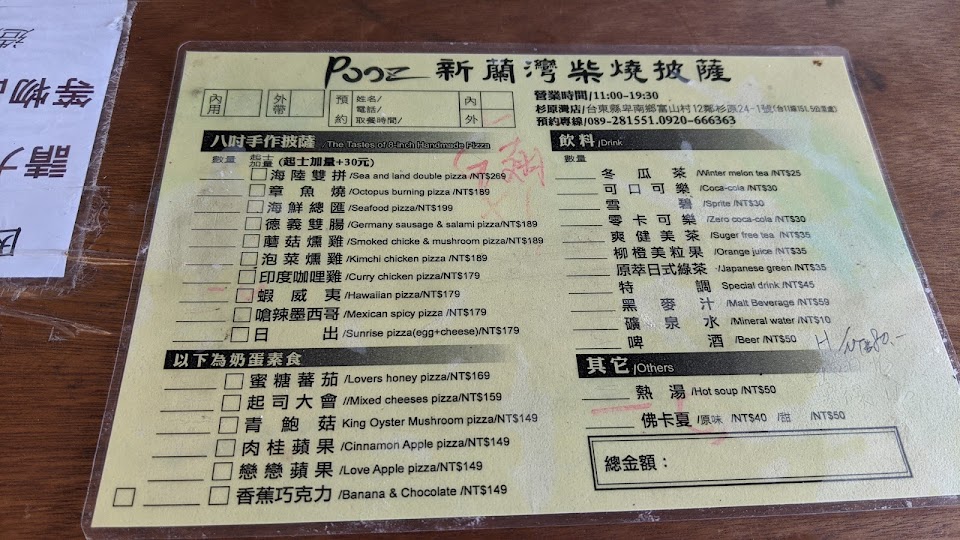 等物
請
Pooz 新蘭灣柴燒披薩
內用 外帶 預約 姓名/ 電話/ 取餐時間/ 內 外
營業時間/11:00-19:30
杉原灣店/台東縣卑南鄉富山村12鄰杉原24-1號(台11線151.5公里處)
預約專線/089-281551.0920-666363
八吋手作披薩 The Tastes of 8-inch Handmade Pizza
數量 起士加量 (起士加量+30元)
海陸雙拼/Sea and land double pizza/NT$269
章魚燒/Octopus burning pizza/NT$189
海鮮總匯/Seafood pizza/NT$199
德義雙腸/Germany sausage & salami pizza/NT$189
蘑菇燻雞/Smoked chicke & mushroom pizza/NT$189
泡菜燻雞/Kimchi chicken pizza/NT$189
印度咖哩雞/Curry chicken pizza/NT$179
蝦威夷/Hawaiian pizza/NT$179
嗆辣墨西哥/Mexican spicy pizza/NT$179
日出/Sunrise pizza(egg+cheese)/NT$179
以下為奶蛋素食
蜜糖蕃茄/Lovers honey pizza/NT$169
起司大會//Mixed cheeses pizza/NT$159
青鮑菇 King Oyster Mushroom pizza/NT$149
肉桂蘋果/Cinnamon Apple pizza/NT$149
戀戀蘋果/Love Apple pizza/NT$149
香蕉巧克力/Banana & Chocolate/NT$149
飲料/Drink
數量
冬瓜茶/Winter melon tea/NT$25
可口可樂/Coca-cola/NT$30
雪碧/Sprite/NT$30
零卡可樂/Zero coca-cola/NT$30
爽健美茶/Suger free tea/NT$35
柳橙美粒果/Orange juice/NT$35
原萃日式綠茶/Japanese green/NT$35
特調 Special drink/NT$45
黑麥汁/Malt Beverage/NT$59
礦泉水/Mineral water/NT$10
啤酒/Beer/NT$50
其它/Others
熱湯/Hot soup/NT$50
佛卡夏/原味 /NT$40 /甜 /NT$50
總金額：